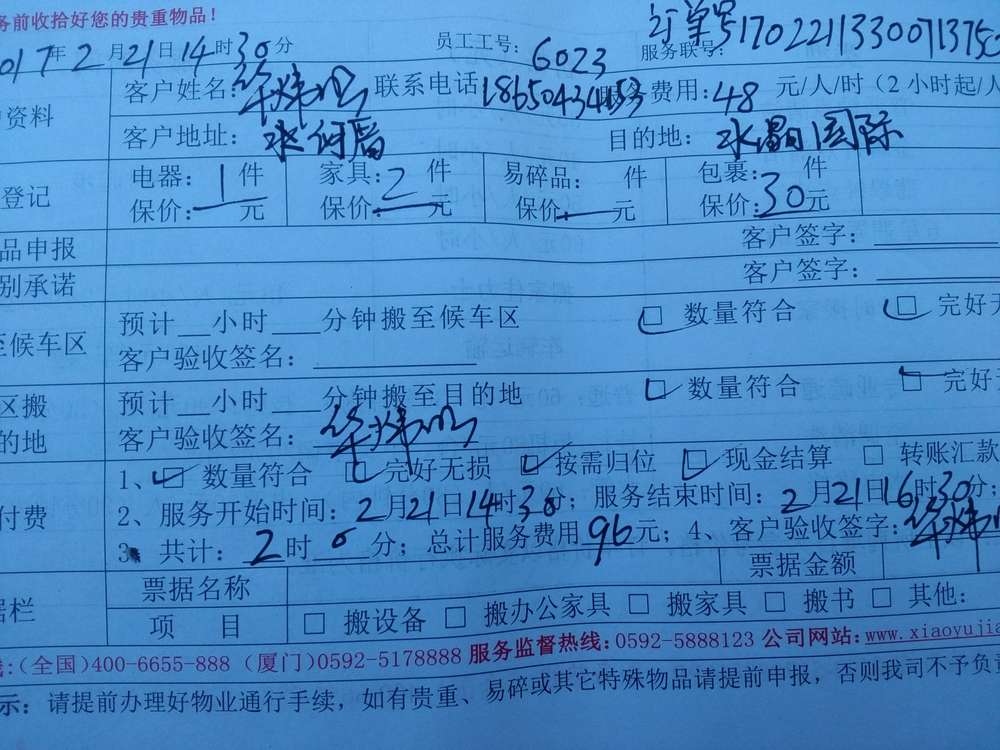 务前收拾好您的贵重物品！
017年2月21日14时30分 员工工号：6023 服务联号： 订单号1702211330071375
资料 客户姓名： 联系电话 服务费用：48元/人/时（2小时起/人
客户地址： 目的地：水晶国际
登记 电器：1件 家具：2件 易碎品： 件 包裹：30件
保价： 元 保价： 元 保价： 元 保价： 元
品申报 客户签字：
别承诺 客户签字：
至候车区 预计 小时 分钟搬至候车区 □数量符合 □完好无
客户验收签名：
区搬 预计 小时 分钟搬至目的地 ☑数量符合 □完好无
的地 客户验收签名：
1、☑数量符合 ☑完好无损 ☑按需归位 ☑现金结算 □转账汇款
付费 2、服务开始时间：2月21日14时30分；服务结束时间：2月21日16时30分；
3、共计：2时0分；总计服务费用96元；4、客户验收签字：
据栏 票据名称 票据金额
项 目 □搬设备 □搬办公家具 □搬家具 □搬书 □其他：
线:(全国)400-6655-888 (厦门)0592-5178888 服务监督热线:0592-5888123 公司网站:www.xiaoyujia
示：请提前办理好物业通行手续，如有贵重、易碎或其它特殊物品请提前申报，否则我司不予负责